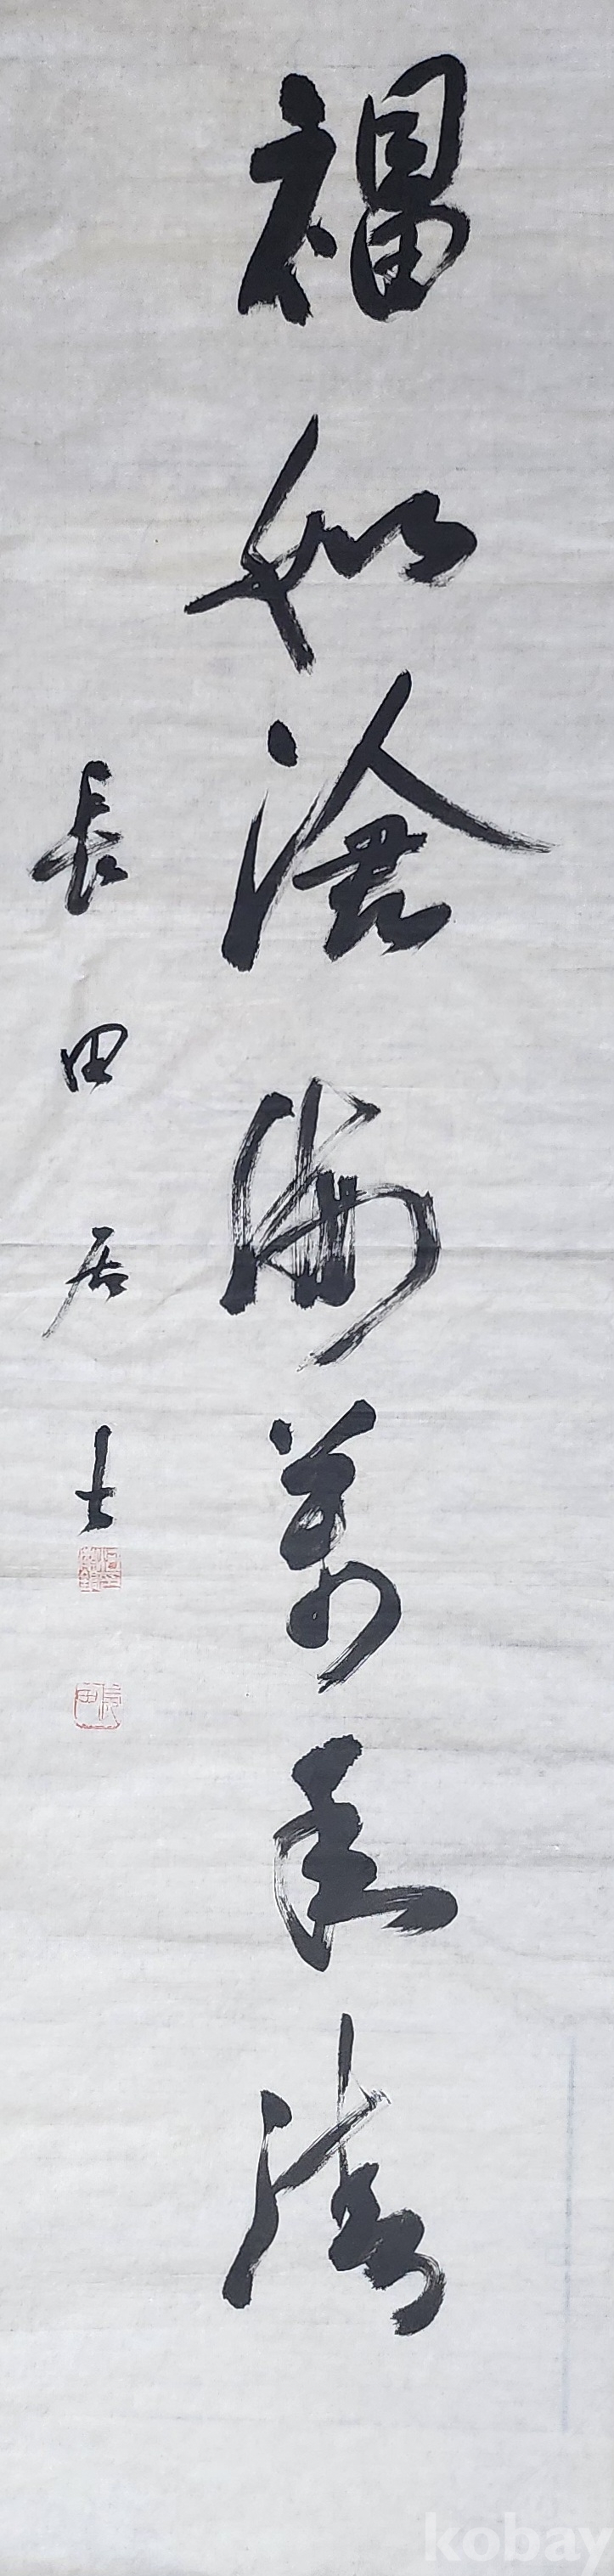 福如滄海萬年清
長田居士
長田
kobay